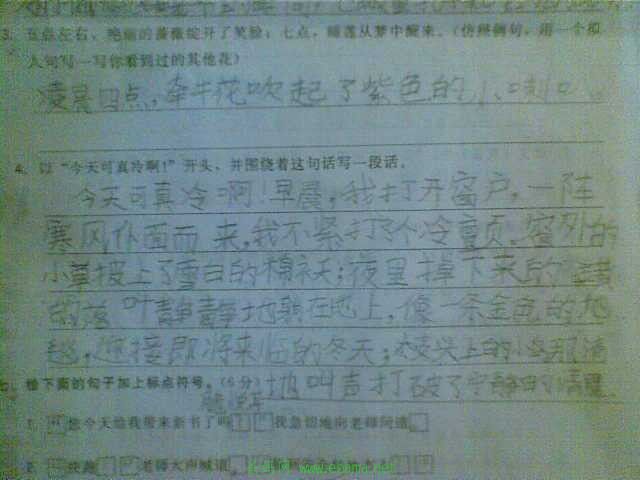 3. 五点左右，艳丽的蔷薇绽开了笑脸；七点，睡莲从梦中醒来。（仿照例句，用一个拟
人句写一写你看到过的其他花）
凌晨四点，牵牛花吹起了紫色的小喇叭。
4. 以“今天可真冷啊！”开头，并围绕着这句话写一段话。
今天可真冷啊！早晨，我打开窗户，一阵
寒风仆面而来，我不紧打了个冷，窗外的
小草披上了雪白的棉袄；夜里掉下来的
的落叶静静地躺在地上，像一条金色的地
毯，迎接即将来临的冬天；枝头上的小鸟那清
脆
地叫声打破了宁静的清晨。
七、给下面的句子加上标点符号。（6分）
1. 您今天给我带来新书了吗 我急切地向老师问道
2. 老师大声喊道
www.